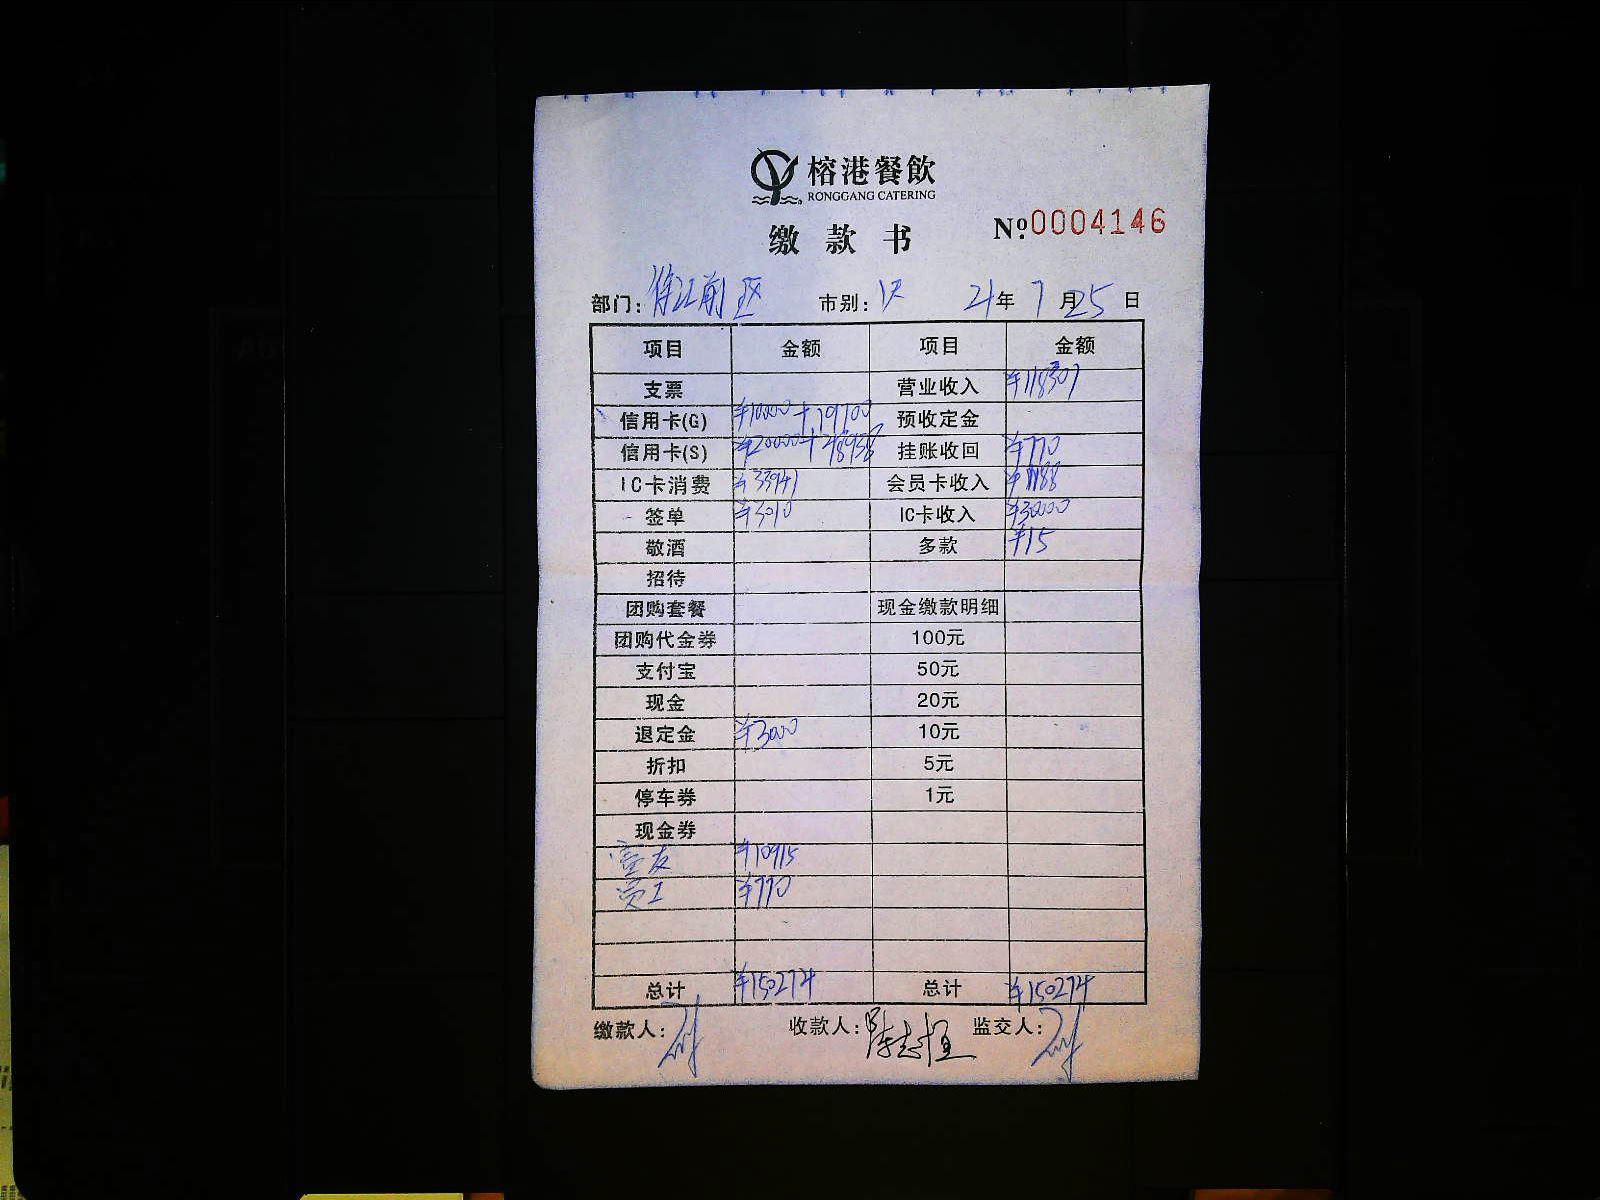 榕港餐飲
RONGGANG CATERING
缴款书 №0004146
部门: 徐汇前区 市别: 21年 7月25日
项目 金额 项目 金额
支票 营业收入 ¥118301
信用卡(G) ¥10000+ 预收定金
信用卡(S) ¥20000+ 挂账收回 ¥770
IC卡消费 ¥33941 会员卡收入 ¥1188
签单 ¥5010 IC卡收入 ¥30000
敬酒 多款 ¥15
招待
团购套餐 现金缴款明细
团购代金券 100元
支付宝 50元
现金 20元
退定金 ¥3000 10元
折扣 5元
停车券 1元
现金券
¥10915
员工 ¥770
总计 ¥150274 总计 ¥150274
缴款人: 收款人: 陈志恒 监交人: